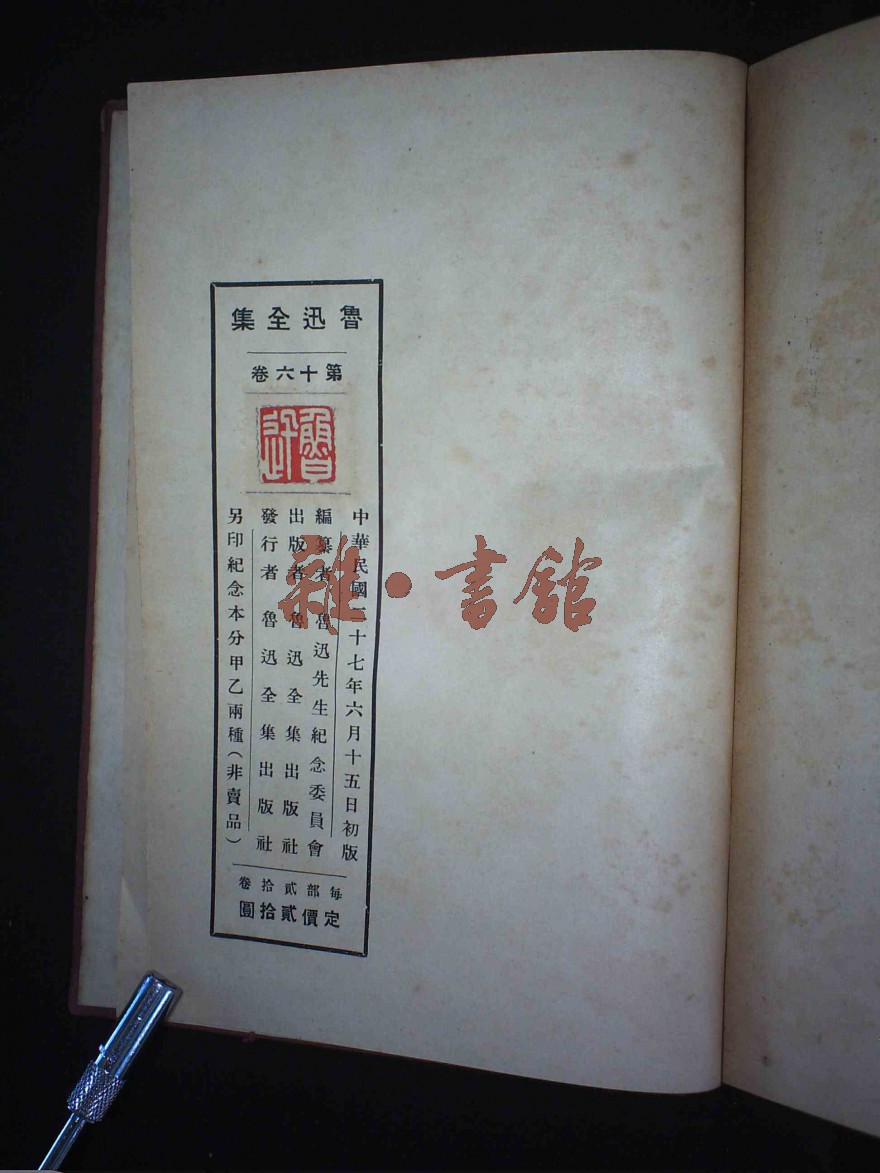 魯迅全集
第十六卷
魯迅
中華民國二十七年六月十五日初版
編纂者 魯迅先生紀念委員會
出版者 魯迅全集出版社
發行者 魯迅全集出版社
另印紀念本分甲乙兩種(非賣品)
每部貳拾卷
定價貳拾圓
雜·書館